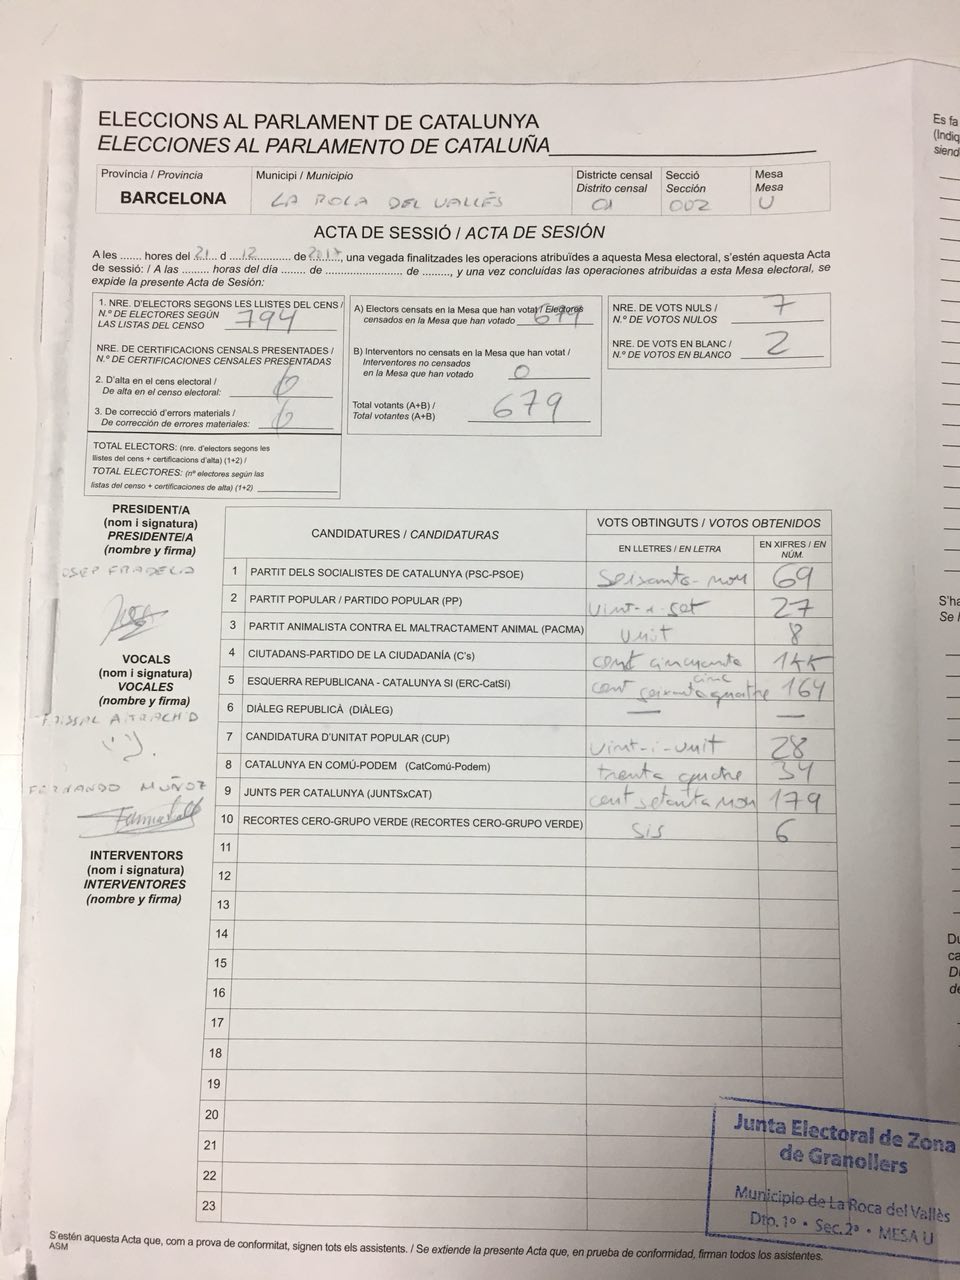 ELECCIONS AL PARLAMENT DE CATALUNYA
ELECCIONES AL PARLAMENTO DE CATALUÑA
Província / Provincia
BARCELONA
Municipi / Municipio
LA ROCA DEL VALLÈS
Districte censal
Distrito censal
01
Secció
Sección
002
Mesa
Mesa
U
ACTA DE SESSIÓ / ACTA DE SESIÓN
A les ....... hores del 21 d ....12........... de 2017, una vegada finalitzades les operacions atribuïdes a aquesta Mesa electoral, s'estén aquesta Acta
de sessió: / A las ......... horas del día ....... de ........................ de ........, y una vez concluidas las operaciones atribuidas a esta Mesa electoral, se
expide la presente Acta de Sesión:
1. NRE. D'ELECTORS SEGONS LES LLISTES DEL CENS /
N.º DE ELECTORES SEGÚN
LAS LISTAS DEL CENSO 794
NRE. DE CERTIFICACIONS CENSALS PRESENTADES /
N.º DE CERTIFICACIONES CENSALES PRESENTADAS
2. D'alta en el cens electoral /
De alta en el censo electoral:
3. De correcció d'errors materials /
De corrección de errores materiales:
TOTAL ELECTORS: (nre. d'electors segons les
llistes del cens + certificacions d'alta) (1+2) /
TOTAL ELECTORES: (nº electores según las
listas del censo + certificaciones de alta) (1+2)
A) Electors censats en la Mesa que han votat / Electores
censados en la Mesa que han votado 679
B) Interventors no censats en la Mesa que han votat /
Interventores no censados
en la Mesa que han votado 0
Total votants (A+B) /
Total votantes (A+B) 679
NRE. DE VOTS NULS /
N.º DE VOTOS NULOS 7
NRE. DE VOTS EN BLANC /
N.º DE VOTOS EN BLANCO 2
PRESIDENT/A
(nom i signatura)
PRESIDENTE/A
(nombre y firma)
VOCALS
(nom i signatura)
VOCALES
(nombre y firma)
FERNANDO MUÑOZ
INTERVENTORS
(nom i signatura)
INTERVENTORES
(nombre y firma)
CANDIDATURES / CANDIDATURAS
VOTS OBTINGUTS / VOTOS OBTENIDOS
EN LLETRES / EN LETRA
EN XIFRES / EN NÚM.
1 PARTIT DELS SOCIALISTES DE CATALUNYA (PSC-PSOE) seixanta-nou 69
2 PARTIT POPULAR / PARTIDO POPULAR (PP) vint-i-set 27
3 PARTIT ANIMALISTA CONTRA EL MALTRACTAMENT ANIMAL (PACMA) vuit 8
4 CIUTADANS-PARTIDO DE LA CIUDADANÍA (C's) cent cinquanta cinc
5 ESQUERRA REPUBLICANA - CATALUNYA SI (ERC-CatSí) cent seixanta quatre 164
6 DIÀLEG REPUBLICÀ (DIÀLEG) — —
7 CANDIDATURA D'UNITAT POPULAR (CUP) vint-i-vuit 28
8 CATALUNYA EN COMÚ-PODEM (CatComú-Podem) trenta quatre 34
9 JUNTS PER CATALUNYA (JUNTSxCAT) cent setanta nou 179
10 RECORTES CERO-GRUPO VERDE (RECORTES CERO-GRUPO VERDE) sis 6
11
12
13
14
15
16
17
18
19
20
21
22
23
Junta Electoral de Zona
de Granollers
Municipio de La Roca del Vallès
Dto. 1º • Sec. 2ª • MESA U
S'estén aquesta Acta que, com a prova de conformitat, signen tots els assistents. / Se extiende la presente Acta que, en prueba de conformidad, firman todos los asistentes.
ASM
Es fa
(Indiq
siend
S'ha